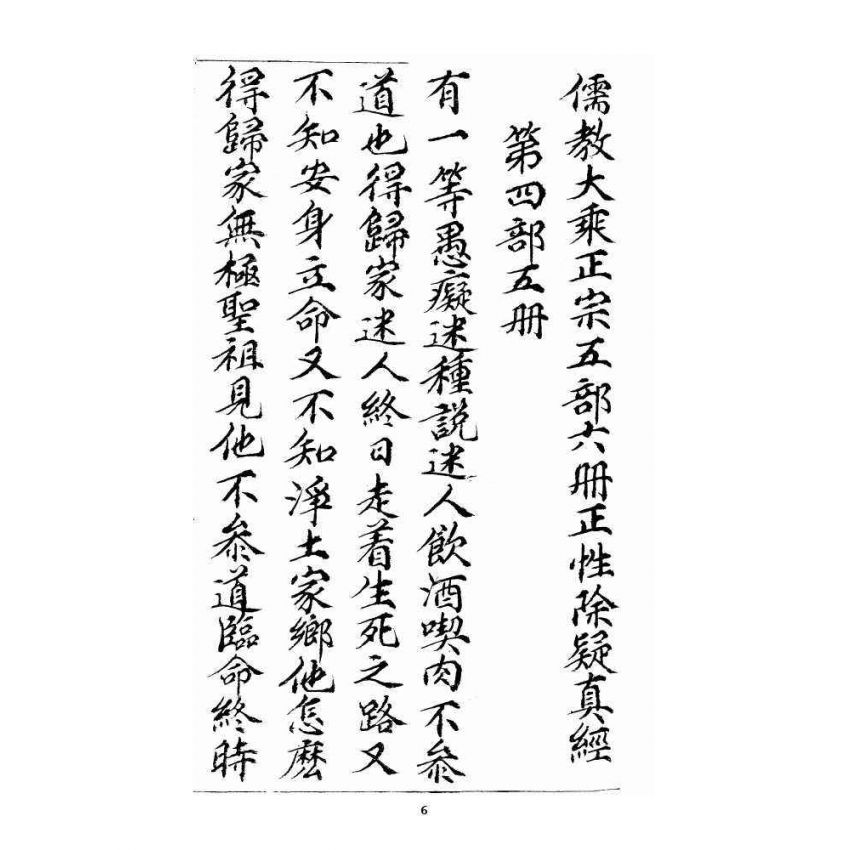 儒教大乘正宗五部六册正性除疑真經
第四部五册
有一等愚癡迷種説迷人飲酒喫肉不叅
道也得歸家迷人終日走着生死之路又
不知安身立命又不知淨土家鄉他怎麽
得歸家無極聖祖見他不叅道臨命終時
6